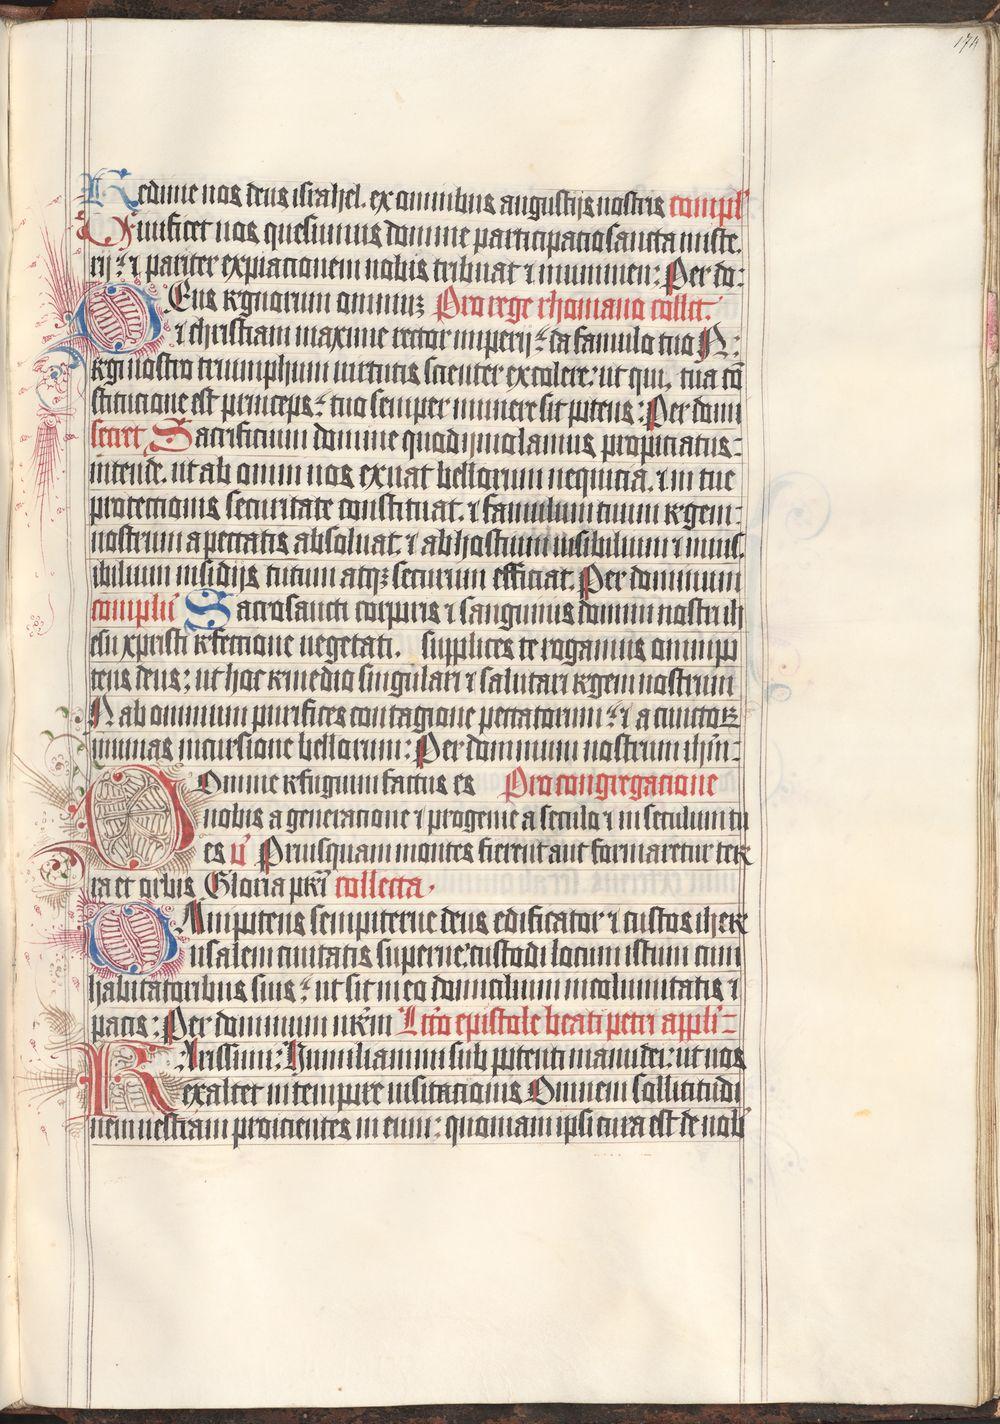 174
Redime nos deus israhel. ex omnibus angustijs nostris compl'
Viuificet nos quesumus domine participatio sancta miste.
rij : et pariter expiacionem nobis tribuat et munimen: Per do:
DEus regnorum omniuz Pro rege rhomano collct.
et christiani maxime rector imperij : da famulo tuo N:
regi nostro triumphum uirtutis scienter excolere: ut qui, tua co͞
stitucione est princeps : tuo semper munere sit potens : Per domi
secret Sacrificium domine quod ijmolamus propiciatus:
intende. ut ab omni nos exuat bellorum nequicia. et in tue
protectionis securitate constituat. et famulum tuum regem:
nostrum a peccatis absoluat. et ab hostium uisibilium et inuis.
ibilium insidijs tutum atqz securum efficiat. Per dominum
complu͞ Sacrosancti corporis et sanguinis domini nostri ih
esu xpristi refectione uegetati. supplices te rogamus omnipo
tens deus; ut hoc remedio singulari et salutari regem nostrum
N ab omnium purifices contagione peccatorum : et a cunctorz
munias incursione bellorum: Per dominum nostrum ihm͞:
DOmine refugium factus es Pro congregacione
nobis a generacione et progenie a seculo et in seculum tu
es v͞ Priusquam montes fierent aut formaretur ter
ra et orbis Gloria pr͞i collecta.
OMnipotens sempiterne deus edificator et custos iher
usalem ciuitatis superne: custodi locum istum cum
habitatoribus suis : ut sit in eo domicilium incolumitatis et
pacis; Per dominum nr͞m Lcc͞o epistole beati petri appli=
KArissimi: Humiliamini sub potenti manu dei: ut uos
exaltet in tempore uisitacionis Omnem sollicitudi
nem uestram proicientes in eum: quoniam ipsi cura est de uob'